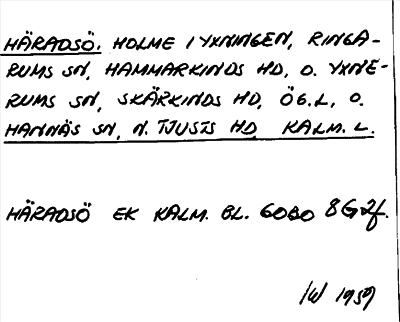 HÄRADSÖ. HOLME I YXNINGEN, RINGA-
RUMS SN, HAMMARKINDS HD, O. YXNE-
RUMS SN, SKÄRKINDS HD, ÖG.L, O.
HANNÄS SN, N. TJUSTS HD, KALM. L.
HÄRADSÖ EK KALM. BL. GOBO 8G2f.
IW 1959